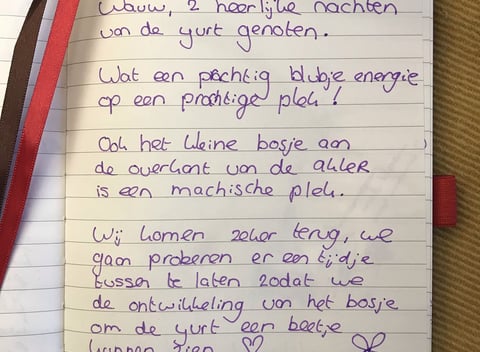 Wauw, 2 heerlijke nachten
van de yurt genoten.
Wat een prachtig blubje energie
op een prachtige plek!
Ook het kleine bosje aan
de overkant van de akker
is een machische plek.
Wij komen zeker terug, we
gaan proberen er een tijdje
tussen te laten zodat we
de ontwikkeling van het bosje
om de yurt een beetje
kunnen zien